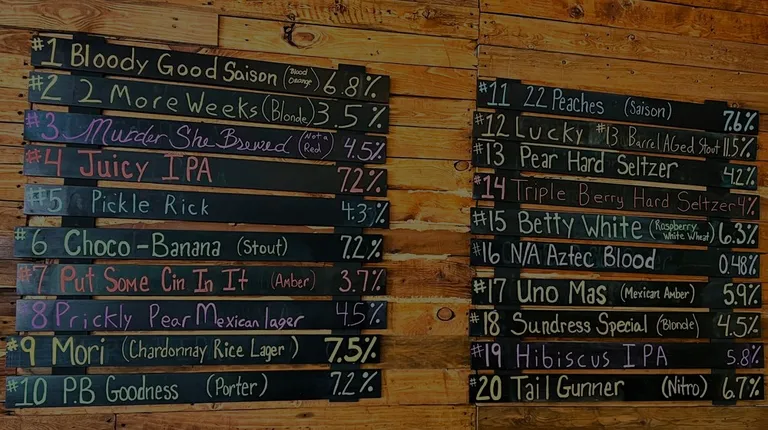 #1 Bloody Good Saison (Blood Orange) 6.8%
#2 2 More Weeks (Blonde) 3.5%
#3 Murder She Brewed (Not a Red) 4.5%
#4 Juicy IPA 7.2%
#5 Pickle Rick 4.3%
#6 Choco-Banana (Stout) 7.2%
#7 Put Some Cin In It (Amber) 3.7%
#8 Prickly Pear Mexican lager 4.5%
#9 Mori (Chardonnay Rice Lager) 7.5%
#10 P.B Goodness (Porter) 7.2%
#11 22 Peaches (Saison) 7.6%
#12 Lucky #13 Barrel Aged Stout 11.5%
#13 Pear Hard Seltzer 4.2%
#14 Triple Berry Hard Seltzer 4%
#15 Betty White (Raspberry White Wheat) 6.3%
#16 N/A Aztec Blood 0.48%
#17 Uno Mas (Mexican Amber) 5.9%
#18 Sundress Special (Blonde) 4.5%
#19 Hibiscus IPA 5.8%
#20 Tail Gunner (Nitro) 6.7%